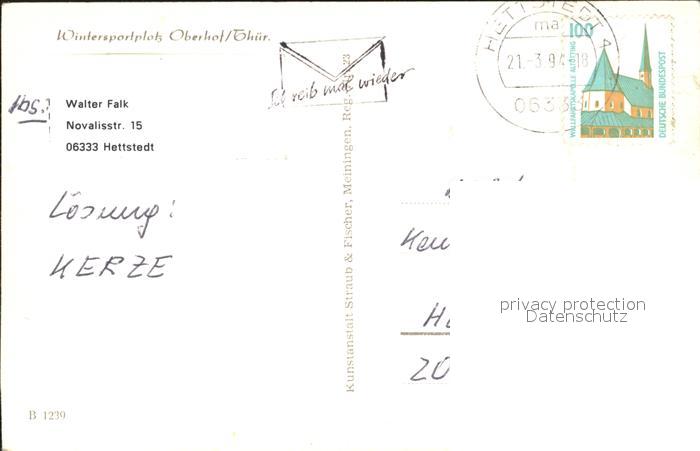 Wintersportplatz Oberhof/Thür.
Schreib mal wieder
HETTSTEDT 4
ma
21.-3.94.-18
0633
100
WALLFAHRTSKAPELLE ALTÖTTING
DEUTSCHE BUNDESPOST
Abs.:
Walter Falk
Novalisstr. 15
06333 Hettstedt
Lösung:
KERZE
Kunstanstalt Straub & Fischer, Meiningen, Reg.
privacy protection
Datenschutz
20
B 1239